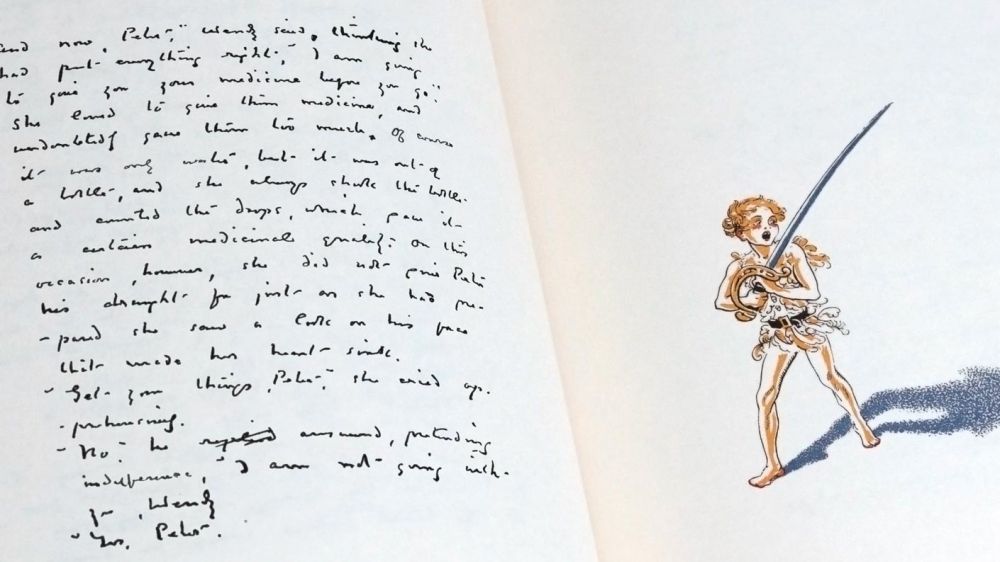 and now, Peter," Wendy said, thinking she
had put everything right, "I am going
to give you your medicine before you go."
She loved to give them medicine, and
undoubtedly gave them too much. Of course
it was only water, but it was out of
a bottle, and she always shook the bottle
and counted the drops, which gave it
a certain medicinal quality. On this
occasion, however, she did not give Peter
his draught for just as she had pre-
-pared she saw a look on his face
that made her heart sink.
"Get your things, Peter," she cried ap-
-prehensively.
"No" he replied answered, pretending
indifference, "I am not going with
you, Wendy
"Yes, Peter".